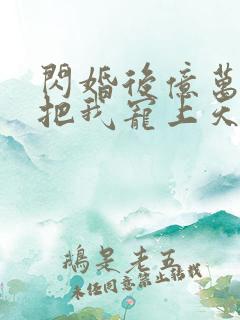 閃婚後億萬
把我寵上天
鵝是老五
未經同意禁止轉載